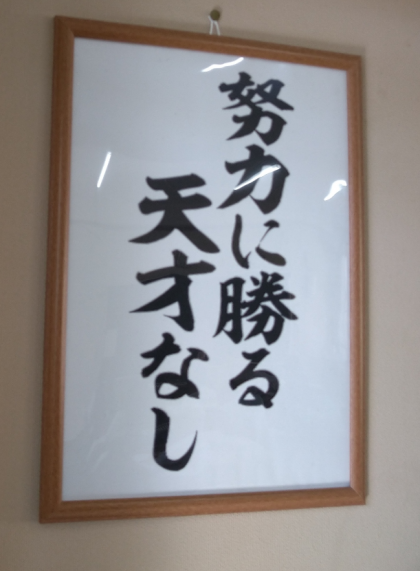 努力に勝る
天才なし